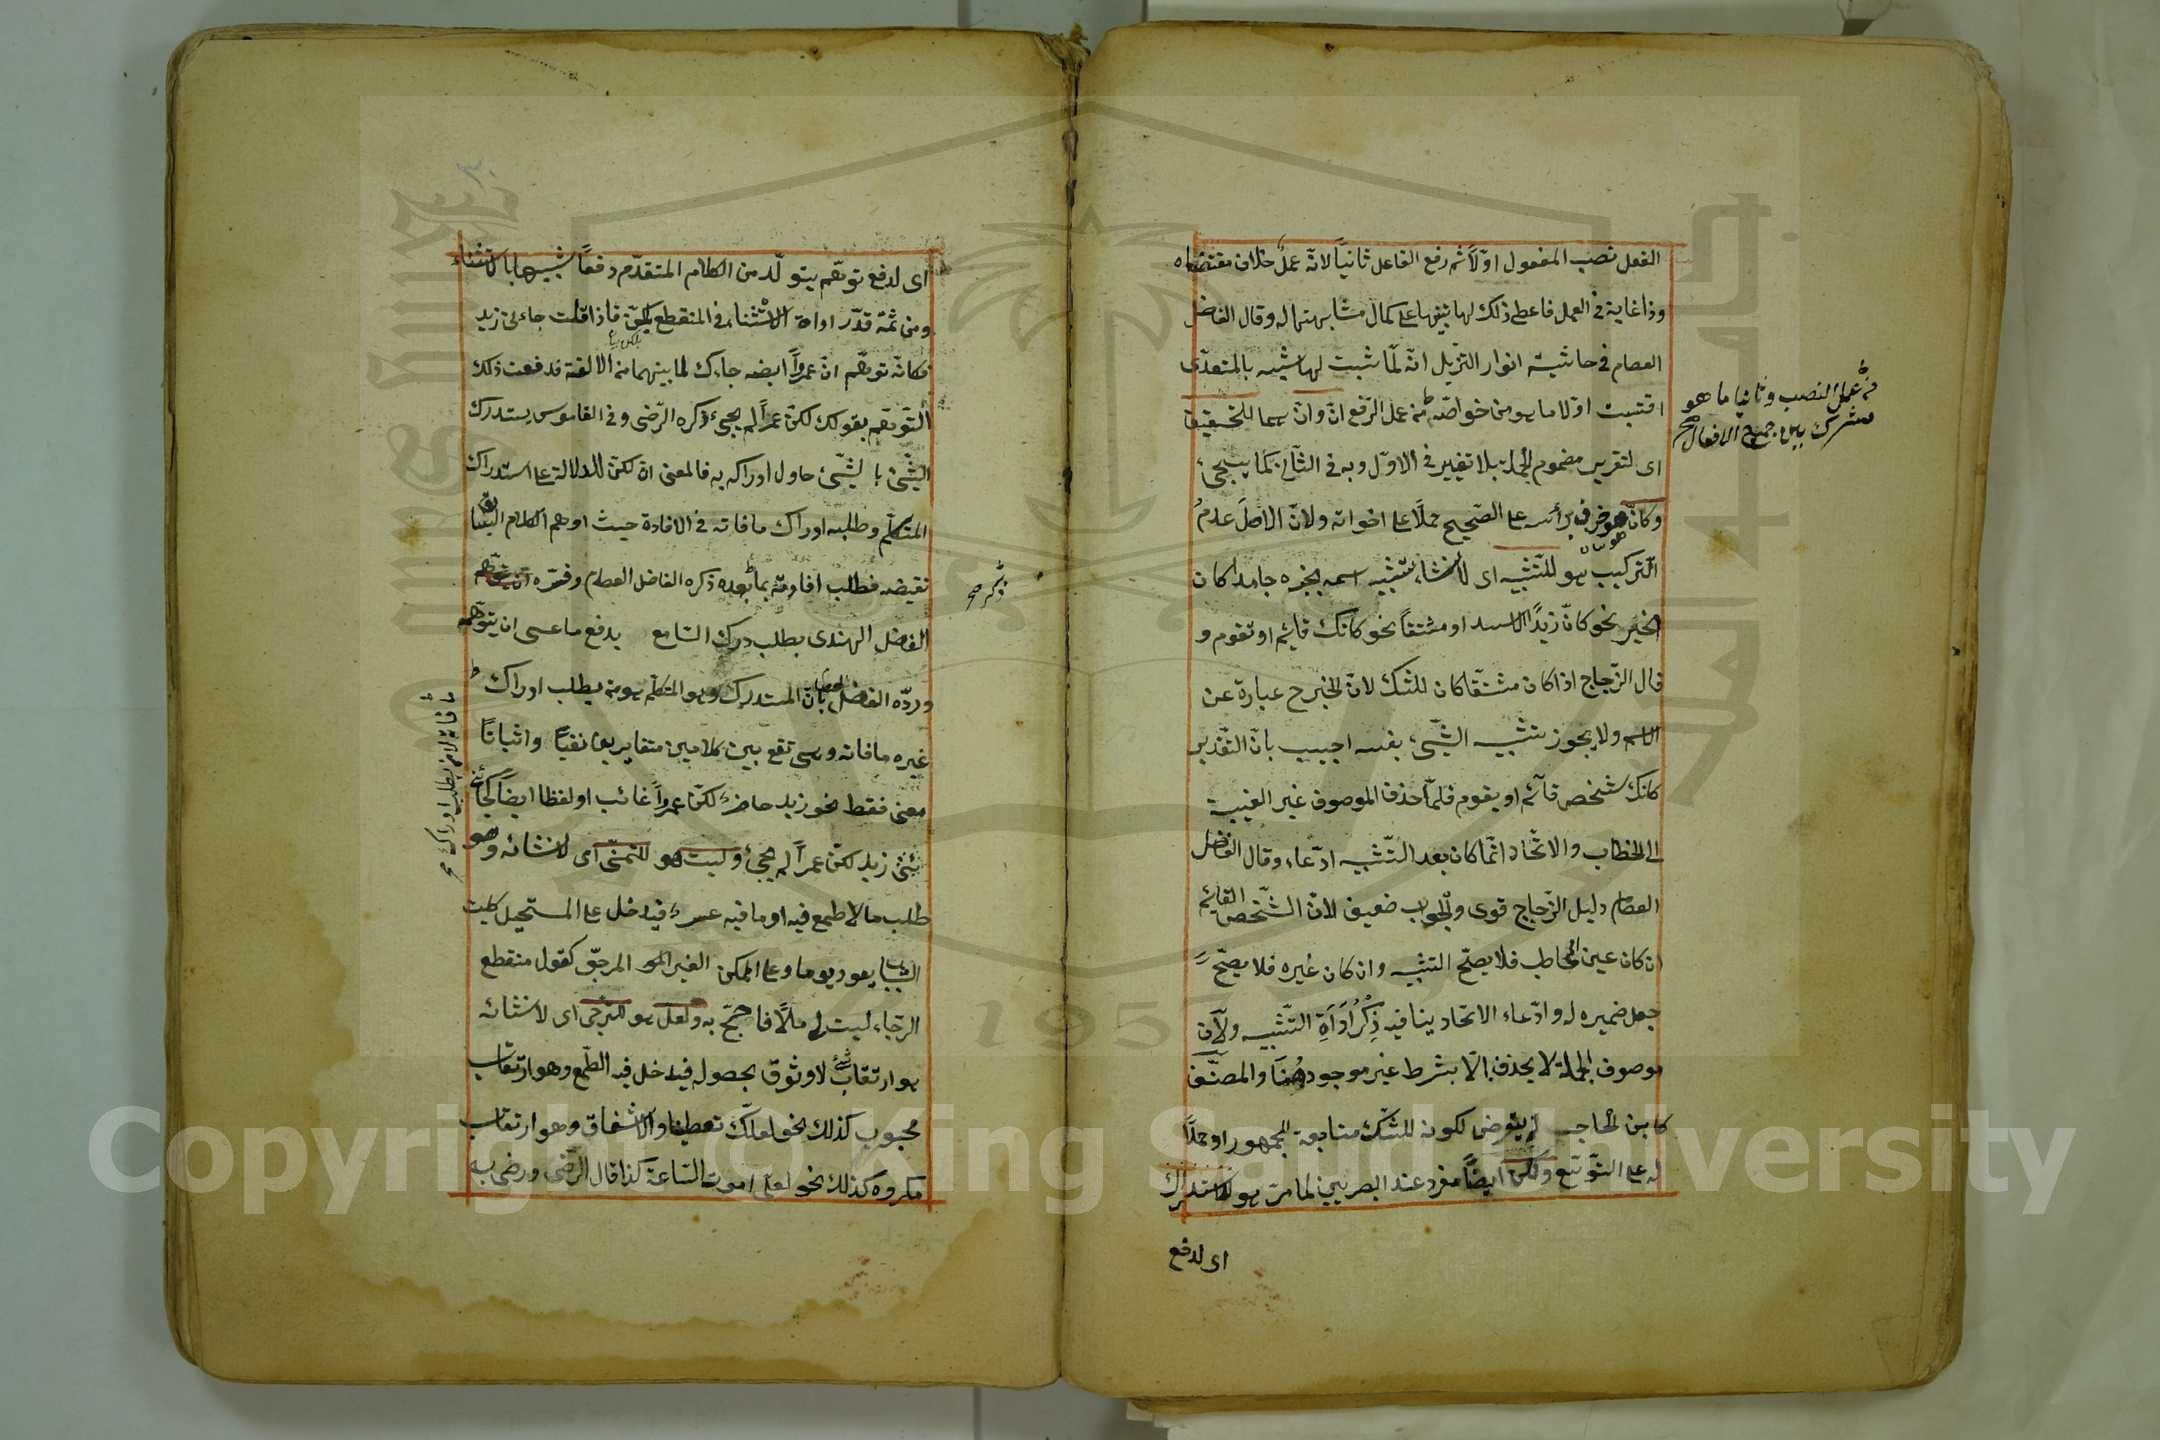 الفعل نصب المفعول اوّلاً ثم رفع الفاعل ثانياً لانّه عمل خلاف مقتضاه
وذا غاية في العمل فاعطى ذلك لها تنبيها على كمال مشابهتها له وقال الفاضل
العصام في حاشية انوار التنزيل انّه لمّا ثبت لها شبه بالمتعدّى
اقتبست اوّلا ما هو من خواصّه من عمل الرّفع انّ وانّ هما للتحقيق
اى لتقرير مضموم الجملة بلا تغيير في الاوّل وبه في الثانى كما يجيئ
وكانّ هو حرف برأسه على الصّحيح حملاً على اخواته ولانّ الاصل عدم
التّركيب هو للتّشبيه اى لانشاء تشبيه اسمه بخبره جامدا كان
الخبر نحو كانّ زيداً الاسد او مشتقاً نحو كانّك قائم او تقوم و
قال الزّجاج اذا كان مشتقّا كان للشّك لانّ الخبر ح عبارة عن
الاسم ولا يجوز تشبيه الشّيئ بنفسه اجيب بانّ التّقدير
كانّك شخص قائم او يقوم فلمّا حذف الموصوف غير الغيبة
الى الخطاب والاتّحاد انّما كان بعد التّشبيه ادّعاء وقال الفاضل
العصام دليل الزّجاج قوى والجواب ضعيف لانّ الشّخص القائم
ان كان عين المخاطب فلا يصحّ التشبيه وان كان غيره فلا يصحّ
جعل ضميره له وادّعاء الاتحاد ينافيه ذكر اداة التّشبيه ولانّ
موصوف الجملة لا يحذف الّا بشرط غير موجود هنا والمصنّف
كابن الحاجب لم يتعرض لكونه للشّك متابعة للجمهور او حملاً
له على التّوسّع ولكنّ ايضاً مفرد عند البصريين لما مرّ هو للاستدراك
اى لدفع
من عمل النصب وثانيا ما هو
مشترك بين جميع الافعال صح
اى لدفع توهّم يتولّد من الكلام المتقدّم دفعاً شبيها بالاستثناء
ومن ثمّة قدّر اداة الاستثناء في المنقطع بلكنّ فاذا قلت جاءنى زيد
فكانّه توهّم انّ عمرواً ايضه جاءك لما بينهما من الالفة فدفعت ذلك
التّوهّم بقولك لكنّ عمراً لم يجيئ ذكره الرّضى وفي القاموس يستدرك
الشّيئ بالشّيئ حاول ادراكه به فالمعنى انّ لكنّ للدلالة على استدراك
المتكلّم وطلبه ادراك ما فاته في الافادة حيث اوهم الكلام السّابق
نقيضه فطلب افادته بما بعده ذكره الفاضل العصام وفسّره
الفاضل الهندى بطلب درك السّامع بدفع ما عسى ان يتوهّمه
وردّه الفاضل العصام بانّ المستدرك وهو المتكلّم هو من يطلب ادراك
غيره ما فاته وهى تقع بين كلامين متغايرين نفياً واثباتاً
معنى فقط نحو زيد حاضر لكنّ عمرواً غائب او لفظا ايضاً كجائنى
زيد لكنّ عمراً لم يجيئ وليت هو للتمنّى اى لانشائه وهو
طلب ما لا طمع فيه او ما فيه عسر فيدخل على المستحيل كليت
الشباب يعود يوما وعلى الممكن الغير المرجوّ كقول منقطع
الرّجاء ليت لى مالاً فاحجّ به ولعل هو للترجّى اى لانشائه
هو ارتقاب شيئ لا وثوق بحصوله فيدخل فيه الطّمع وهو ارتقاب
محبوب كذلك نحو لعلّك تعطينا والاشفاق وهو ارتقاب
مكروه كذلك نحو لعلّى اموت السّاعة كذا قال الرّضى ورضى به
Copyright © King Saud University
1957